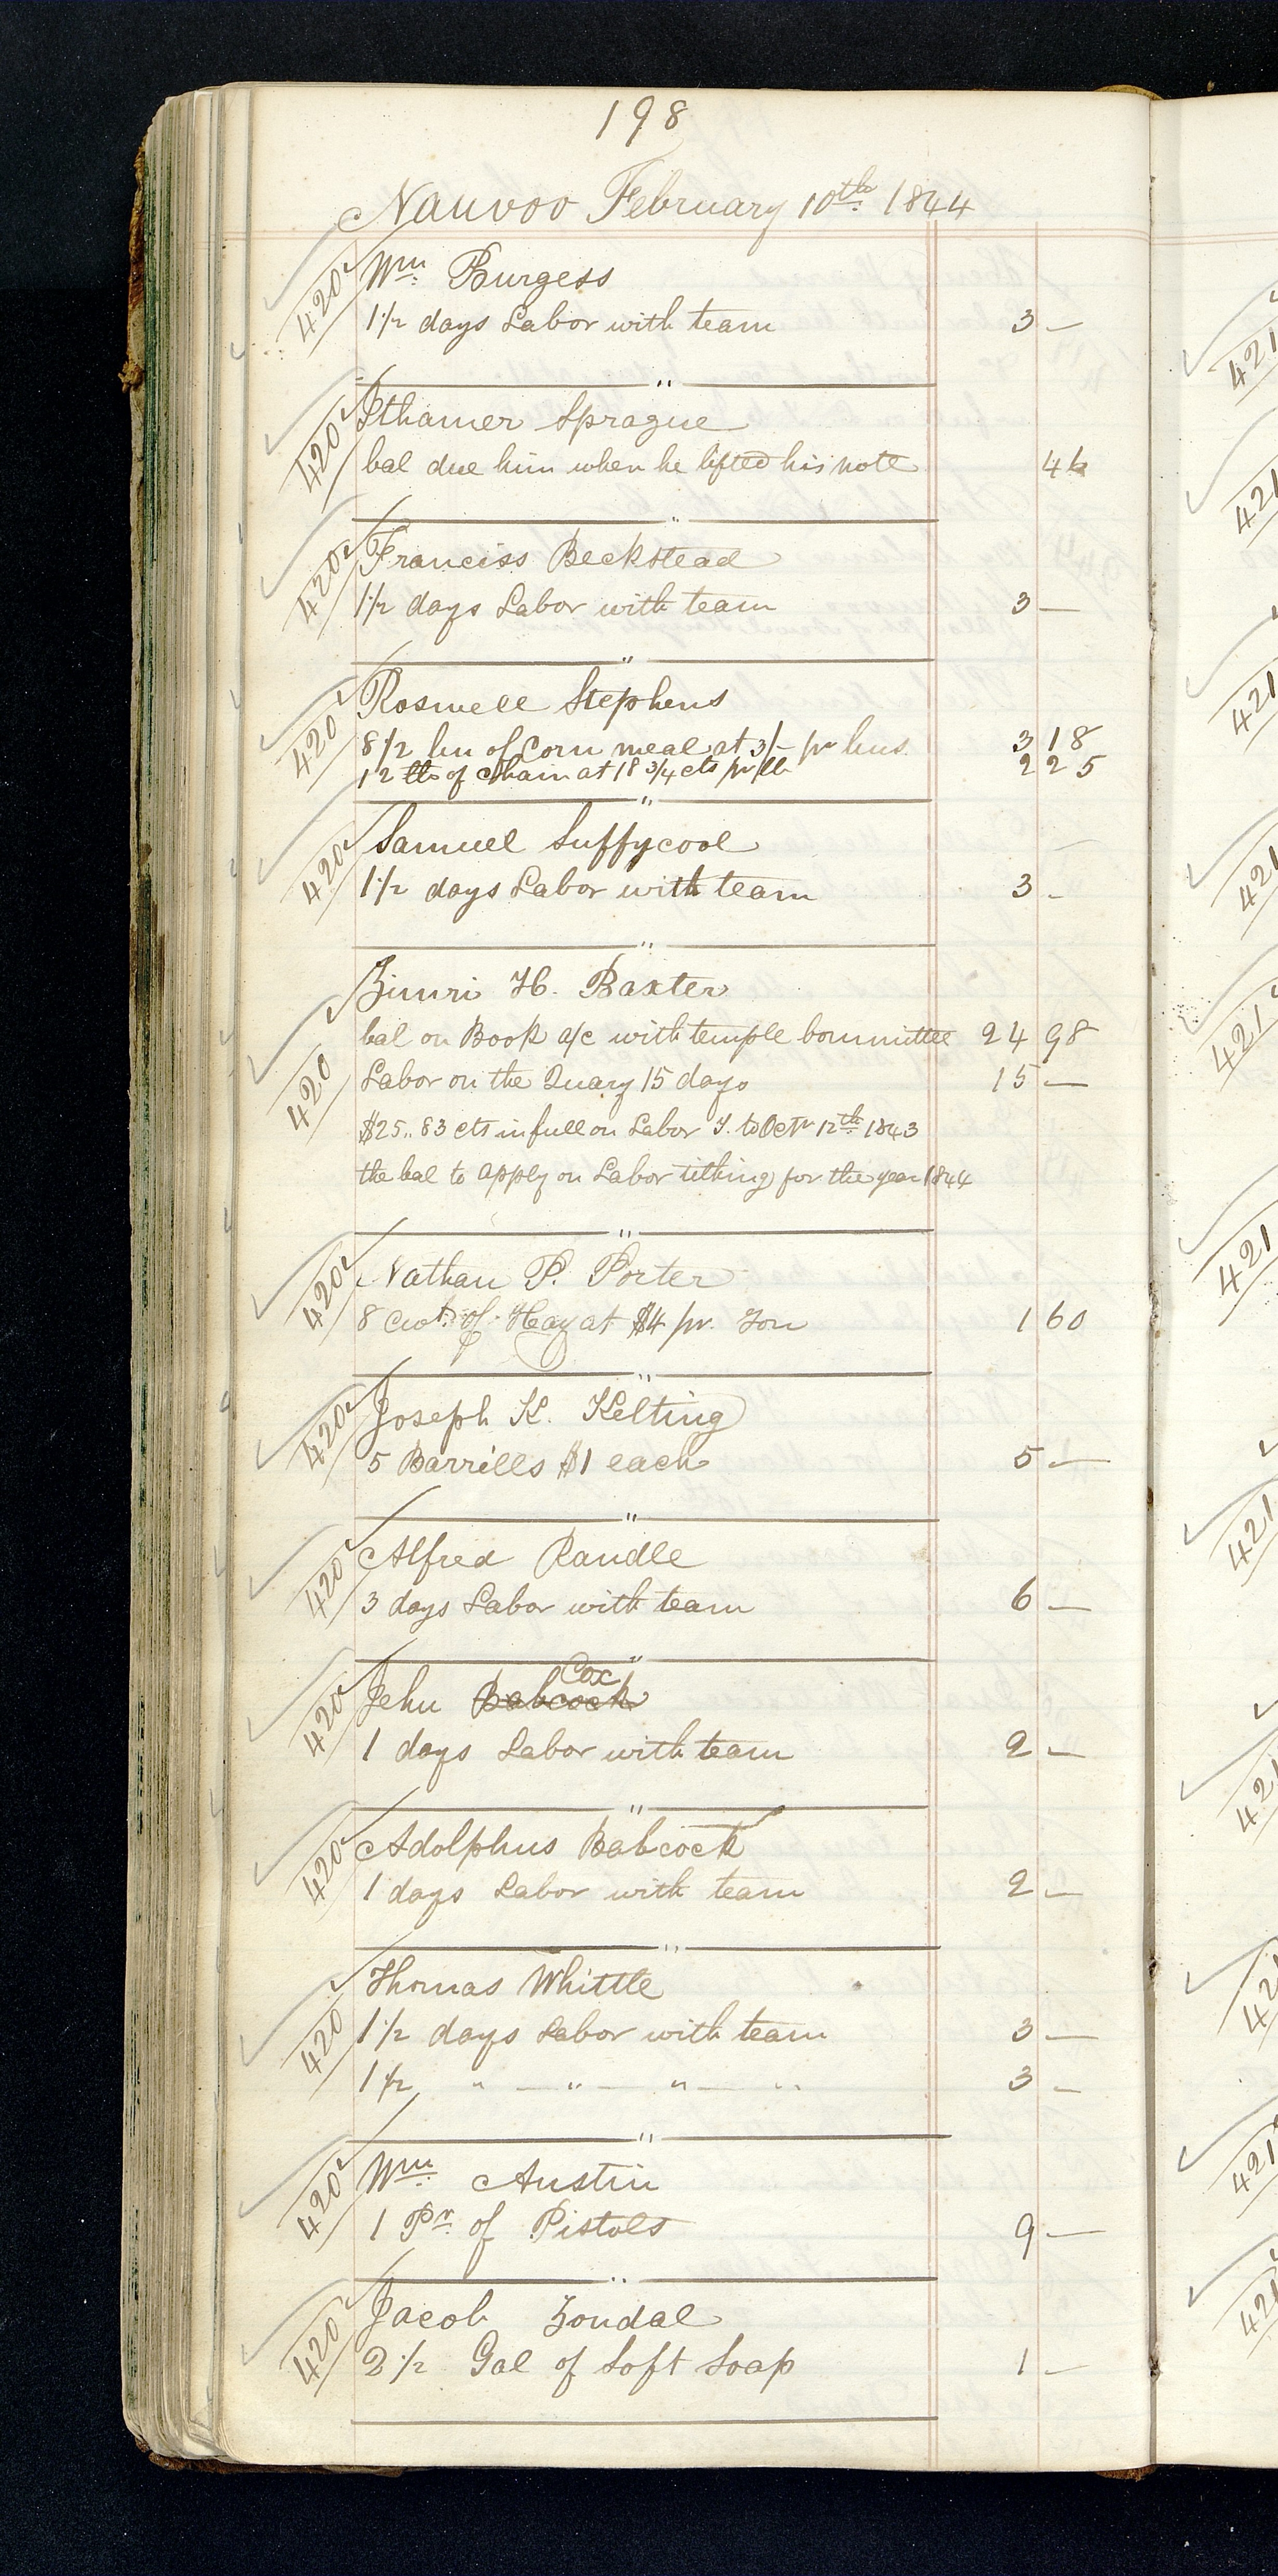 198
Nauvoo February 10th 1844
420 Wm Burgess
1 1/2 days Labor with team 3 —
420 Ithamer Sprague
bal due him when he lifted his note
420 Franciss Beckstead
1 1/2 days Labor with team 3 —
420 Roswell Stephens
8 1/2 bu of Corn meal at 3/- pr bus. 3 18
12 lbs of Chain at 18 3/4 cts pr lb 2 25
420 Samuel Suffycool
1 1/2 days Labor with team 3 -
Zimri H. Baxter
bal on Book a/c with temple Committee 24 98
420 Labor on the Quary 15 days 15 —
$25,, 83 cts in full on Labor T. to Octr 12th 1843
the bal to apply on Labor tithing for the year 1844
420 Nathan P. Porter
8 cwt. of Hay at $4 pr. Ton 1 60
420 Joseph K. Kelting
5 Barrells $1 each 5 —
420 Alfred Randle
3 days Labor with team 6 —
Cox
420 Jehu Babcock
1 days Labor with team 2 —
420 Adolphus Babcock
1 days Labor with team 2 —
Thomas Whittle
420 1 1/2 days Labor with team 3 —
1 1/2 " — " — " — " 3 —
420 Wm Austin
1 Pr of Pistols 9 —
420 Jacob Zondal
2 1/2 Gal of Soft Soap 1 —
421
421
421
421
421
421
421
421
421
421
421